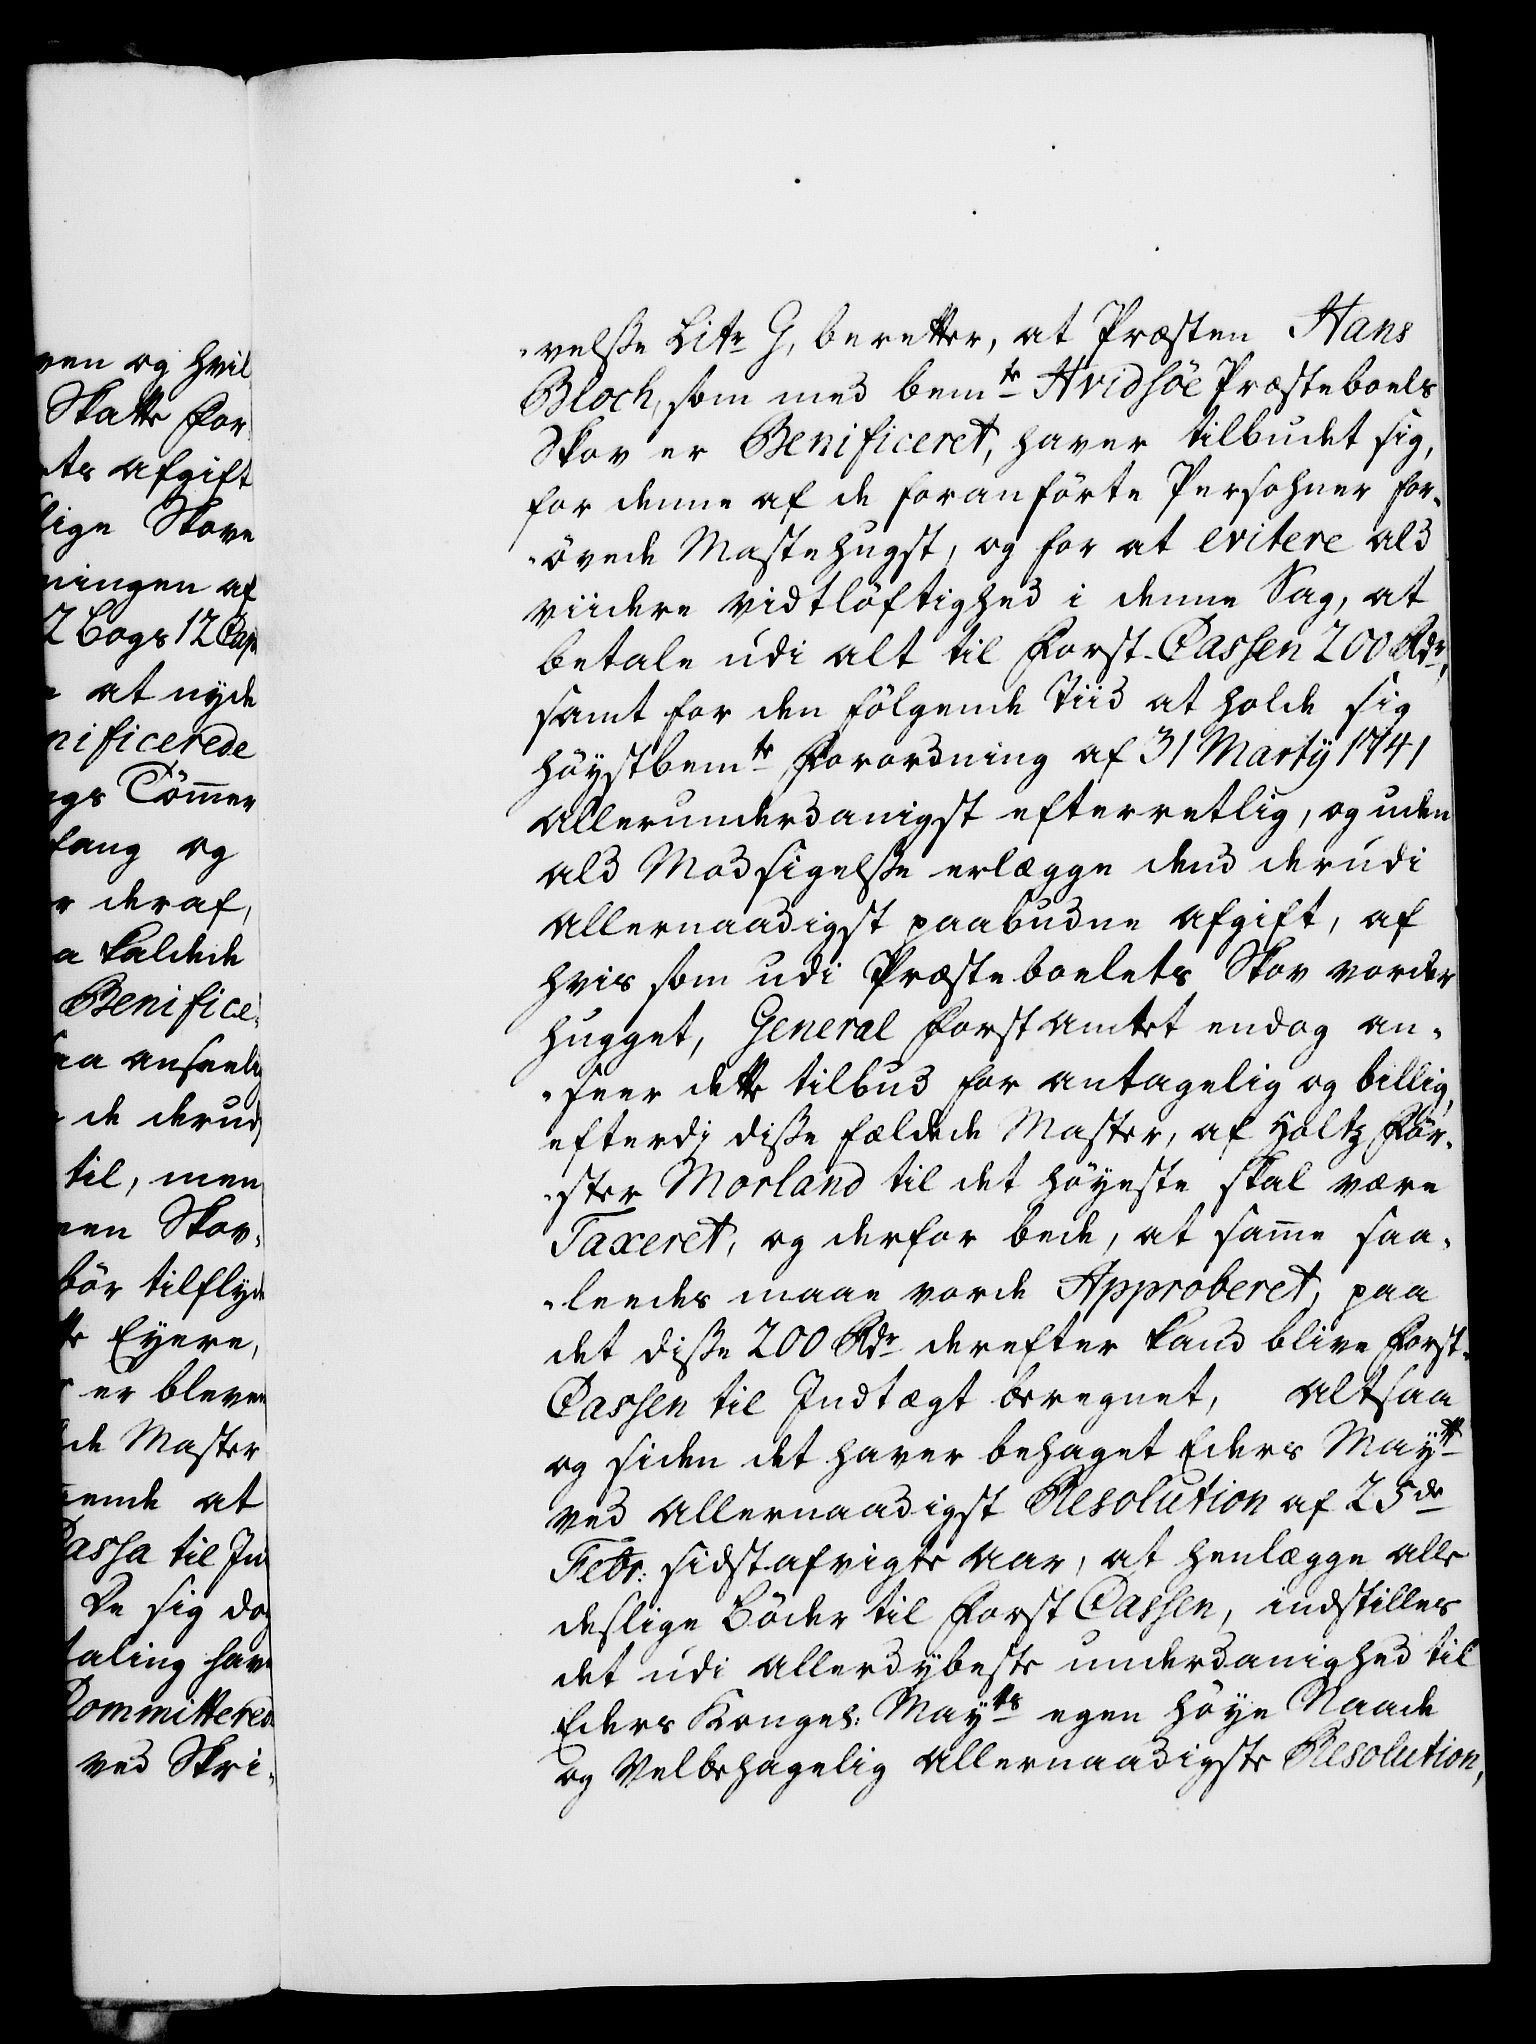 ven og hvil
Skatte for
ts afgift
lige Skove
ningen af
at nyde
nificerede
gs Tömer
fang og
r deraf,
a kaldede
Benifice¬
aa anseelig
de derud
til, men
en Skov¬
bör tilflyde
Eyere,
er bleven
de Master
ende at
Cassa til In
De sig dog
taling hav
Committered
ved Skri¬
¬velsse Litr G, beretter, at Præsten Hans
Bloch, som med bemte Hvidsöe Præsteboels
Skov er Benificeret, haver tilbudet sig,
for denne af de foranförte Persohner for¬
¬övede Mastehugst, og for at evitere ald
viidere vidtlöftighed i denne Sag, at
betale udi alt til Forst-Cassen 200 Rdr,
samt for den fölgende Tiid at holde sig
höystbemte Forordning af 31 Marty 1741
allerunderdanigst efterretlig, og uden
ald Modsigelsse erlægge dend derudi
allernaadigst paabudne afgift, af
hvis som udi Præsteboelets Skov vorder
hugget, General Forstamtet endog an¬
¬seer dette tilbud for antagelig og billig,
efterdj disse fældede Master, af Holtz För¬
¬ster Morland til det höyeste skal være
Taxeret, og derfor bede, at same saa¬
¬leedes maae vorde Approberet, paa
det disse 200 Rdr derefter kand blive Forst¬
Cassen til Indtægt beregnet, altsaa
og siden det haver behaget Eders Maytt
ved allernaadigst Resolution af 25de
Febr: sidstafvigte aar, at henlægge alle
deslige Böder til Forst Cassen, indstilles
det udi allerdybeste underdanighed til
Eders Kongel: Mayts egen höye Naade
og Velbehagelig allernaadigste Resolution,